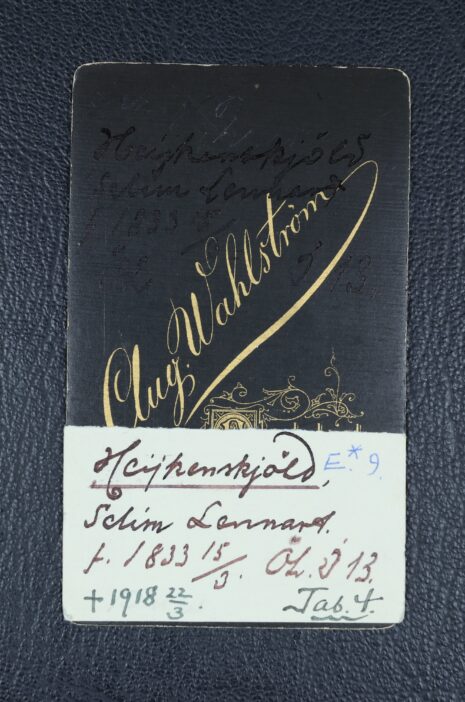 Heijkenskjöld
Selim Lennart
f. 1833 15/3
Öl. I 13.
Aug. Wahlström
Heijkenskjöld, E.* 9.
Selim Lennart.
f. 1833 15/3. Öl. I 13.
+ 1918 22/3. Tab. 4.